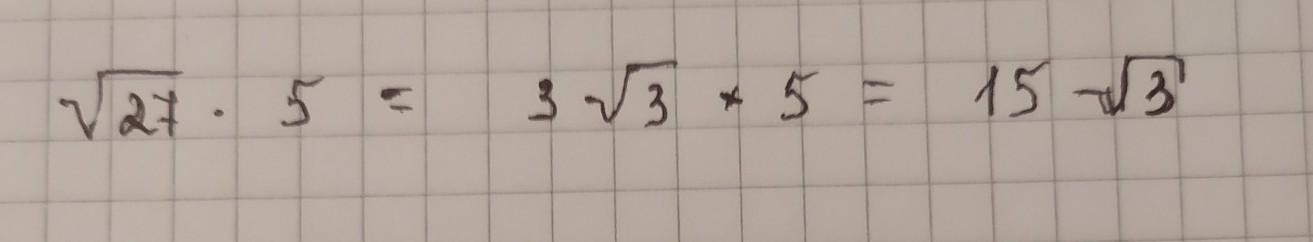 √27 · 5 = 3 √3 * 5 = 15 √3